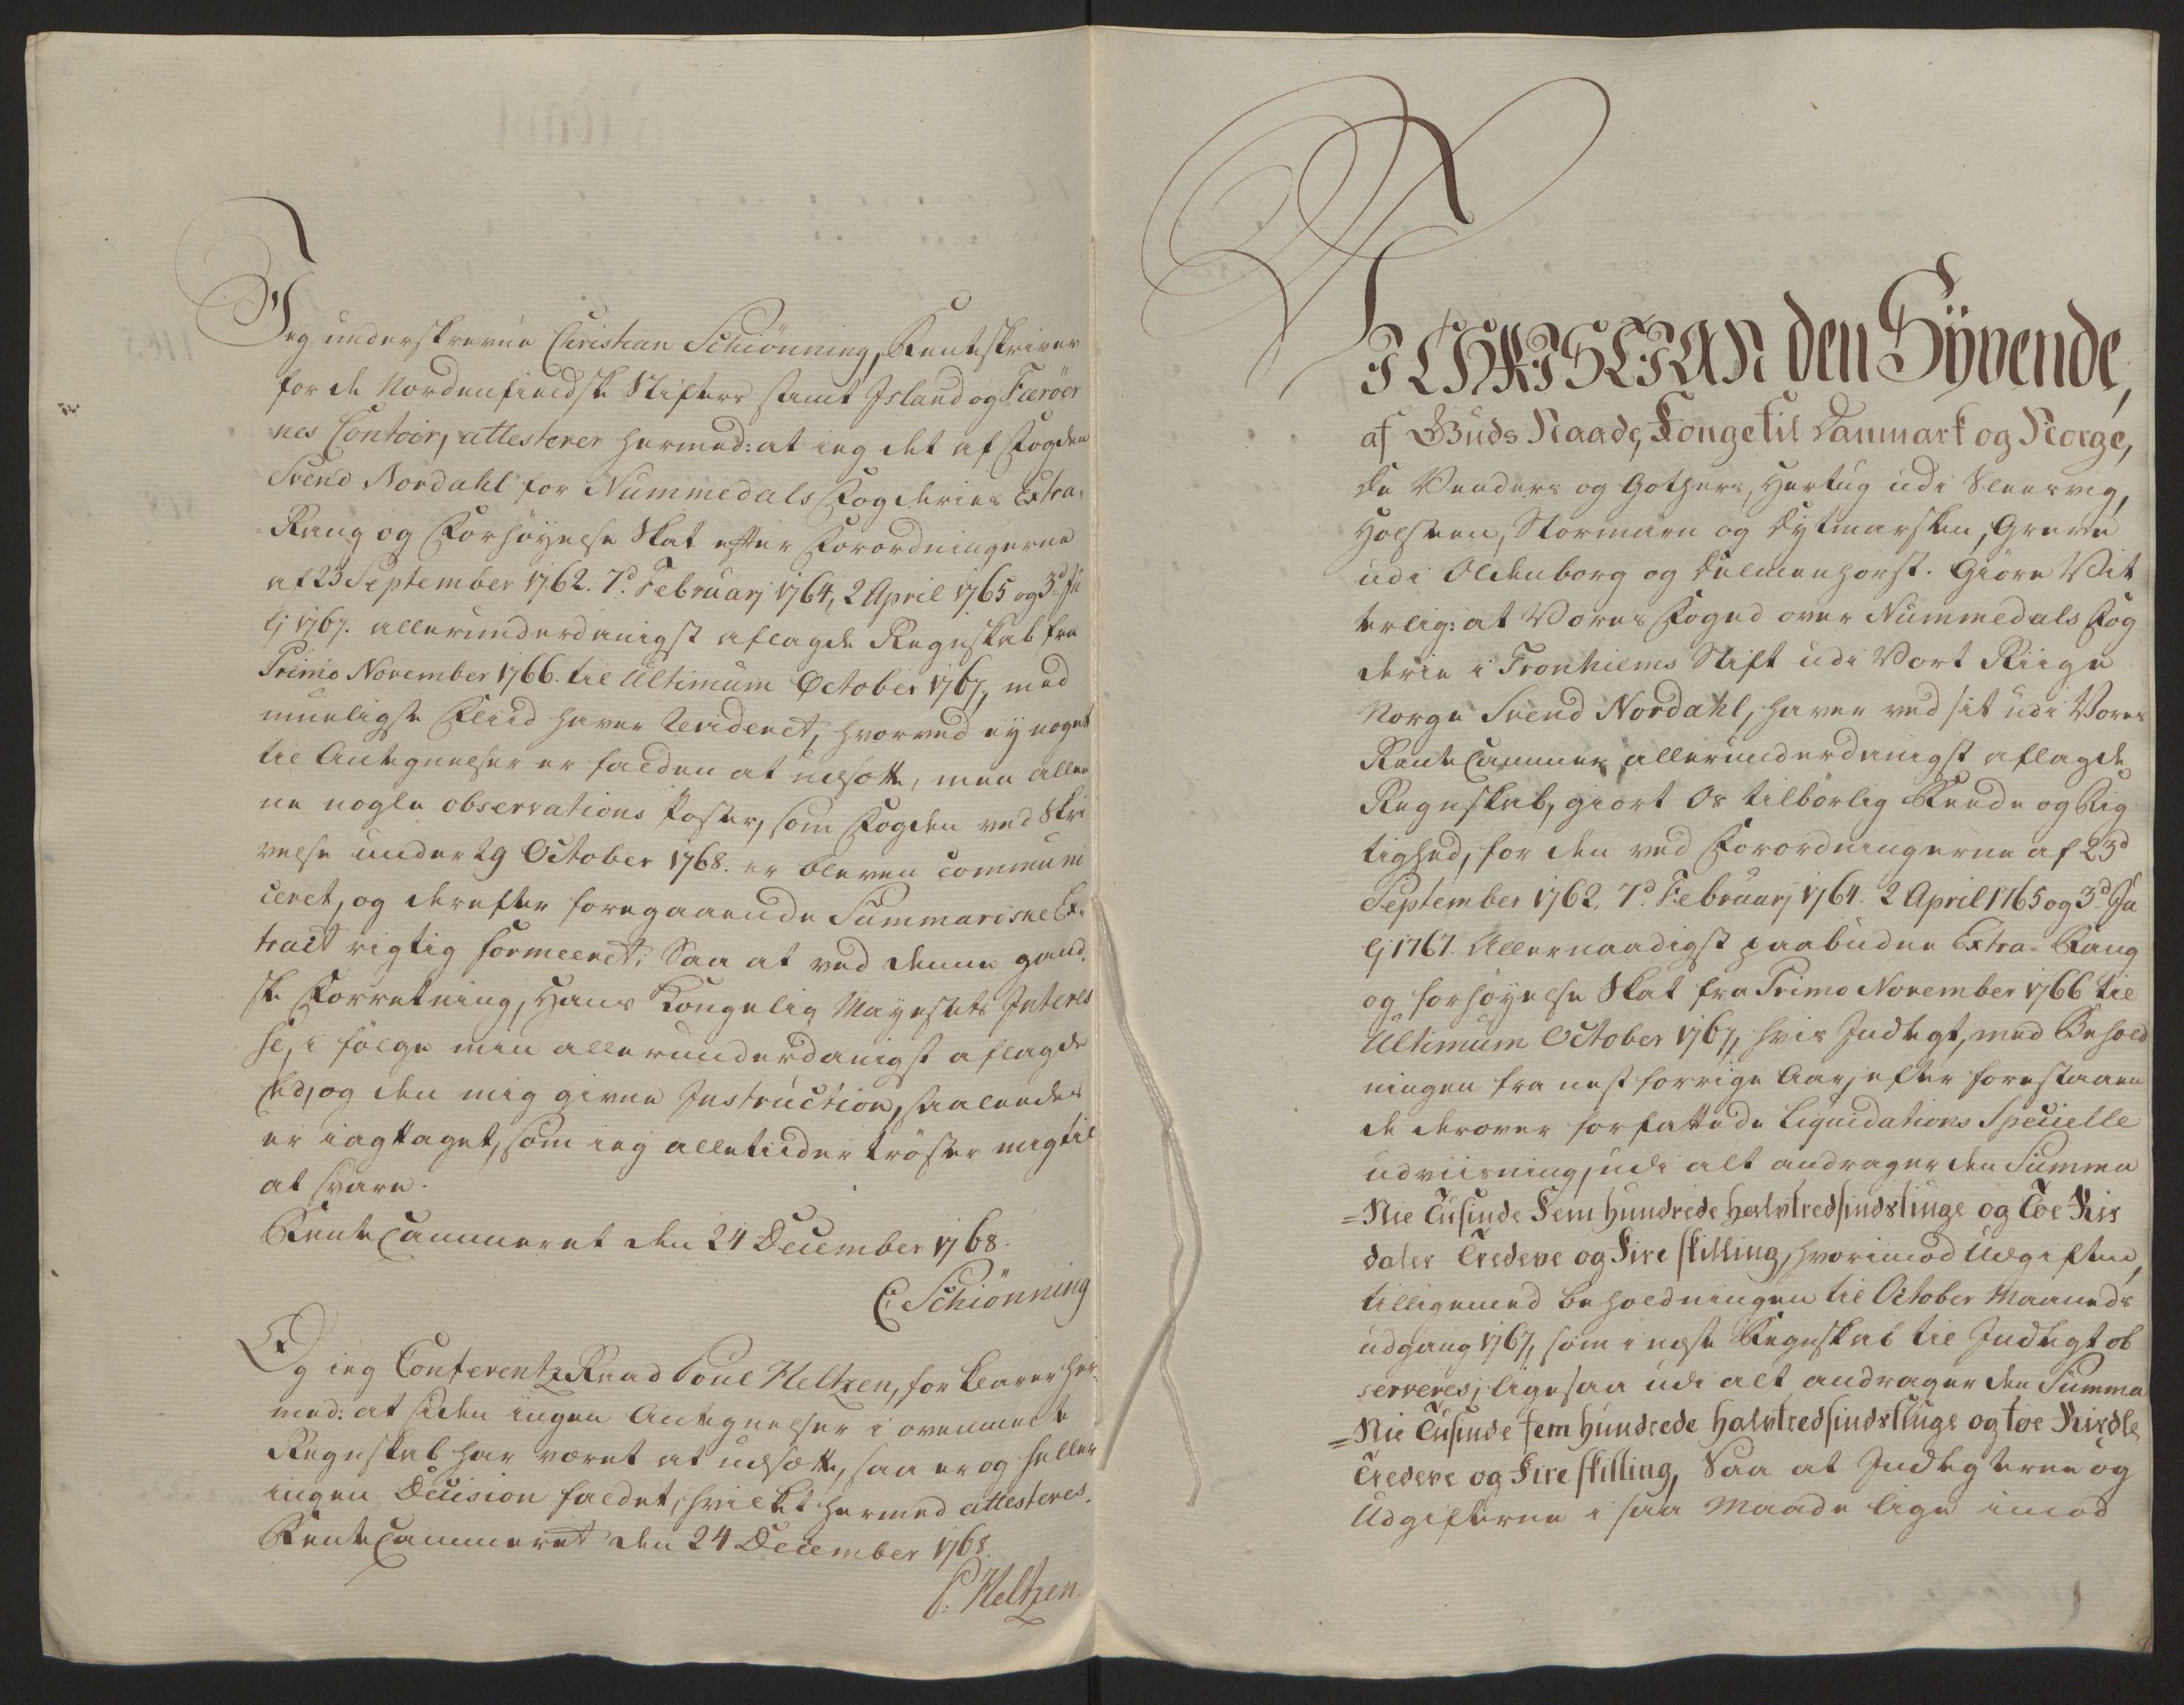 Jeg underskrevne Christian Schiönning, Rentskriver
for de Nordenfieldske Stifter samt Island og Færöer
nes Contoir, attesterer hermed: at ieg det af Fogden
Svend Nordahl for Nummedals Fogderies Extra-
Rang og Forhöyelse Skat efter Forordningerne
af 23 September 1762. 7d. Februarj 1764, 2 April 1765 og 3d. Ju
lj 1767. allerunderdanigst aflagde Regnskab fra
Primo November 1766. til Ultimum October 1767, med
mueligste Fliid haver revideret, hvorved ey noget
til Antegnelser er falden at udsætte, men alle
ne nogle observations Poster, som Fogden ved Skri
velse under 29 October 1768. er bleven communi
ceret, og derefter foregaaende Summariske Ex-
tract rigtig formeeret; Saa at ved denne gand-
ske Forretning, Hans Kongelig Mayestets Interes
se, i fölge min allerunderdanigst aflagde
Eed, og den mig givne Instruction, saaledes
er iagttaget, som ieg alletiider tröster mig til
at svare.
RenteCammeret den 24 December 1768.
C. Schiönning
Og ieg ConferentzRaad Poul Heltzen, forklarer her-
med: at siden ingen Antegnelser i ovenmelte
Regnskab har været at udsætte, saa er og heller
ingen Decision faldet, hvilket hermed attesteres.
RenteCammeret den 24 December 1768.
P. Heltzen.
VI CHRISTIAN den Syvende,
af Guds Naade, Konge til Danmark og Norge,
de Venders og Gothers, Hertug udi Slesvig,
Holsteen, Stormarn og Dytmarsken, Greve
udi Oldenborg og Delmenhorst. Giöre Vit
terlig: at Vores Foged over Nummedals Fog
derie i Tronhiems Stift udi Vort Riige
Norge Svend Nordahl, haver ved sit udi Vores
RenteCammer allerunderdanigst aflagde
Regnskab, giort Os tilbörlig Reede og Rig
tighed, for den ved Forordningerne af 23d
September 1762, 7d. Februarj 1764. 2 April 1765 og 3d. Ju
lj 1767. Allernaadigst paabudne Extra- Rang
og forhöyelse Skat fra Primo November 1766 til
Ultimum October 1767, hvis Indtegt, med Behold
ningen fra nest forrige Aar, efter forestaaen
de derover forfattede Liquidations Specielle
udviisning, udi alt andrager den Summa
=Nie Tusinde Fem hundrede halvtredsindstiuge og Toe Rix
daler Tredeve og Fire skilling, hvorimod Udgiften,
tilligemed beholdningen til October Maaneds
udgang 1767, som i neste Regnskab til Indtegt ob
serveres, ligesaa udi alt andrager den Summa
=Nie Tusinde fem hundrede halvtredsindstiuge og toe Rixdlr
Tredeve og Fire skilling, Saa at Indtegterne og
Udgifterne i saa Maade lige imod